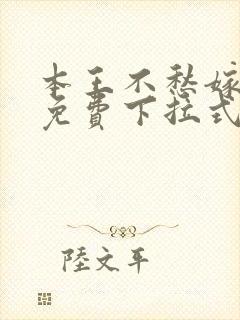 本王不愁嫁
免费下拉式
陸文平